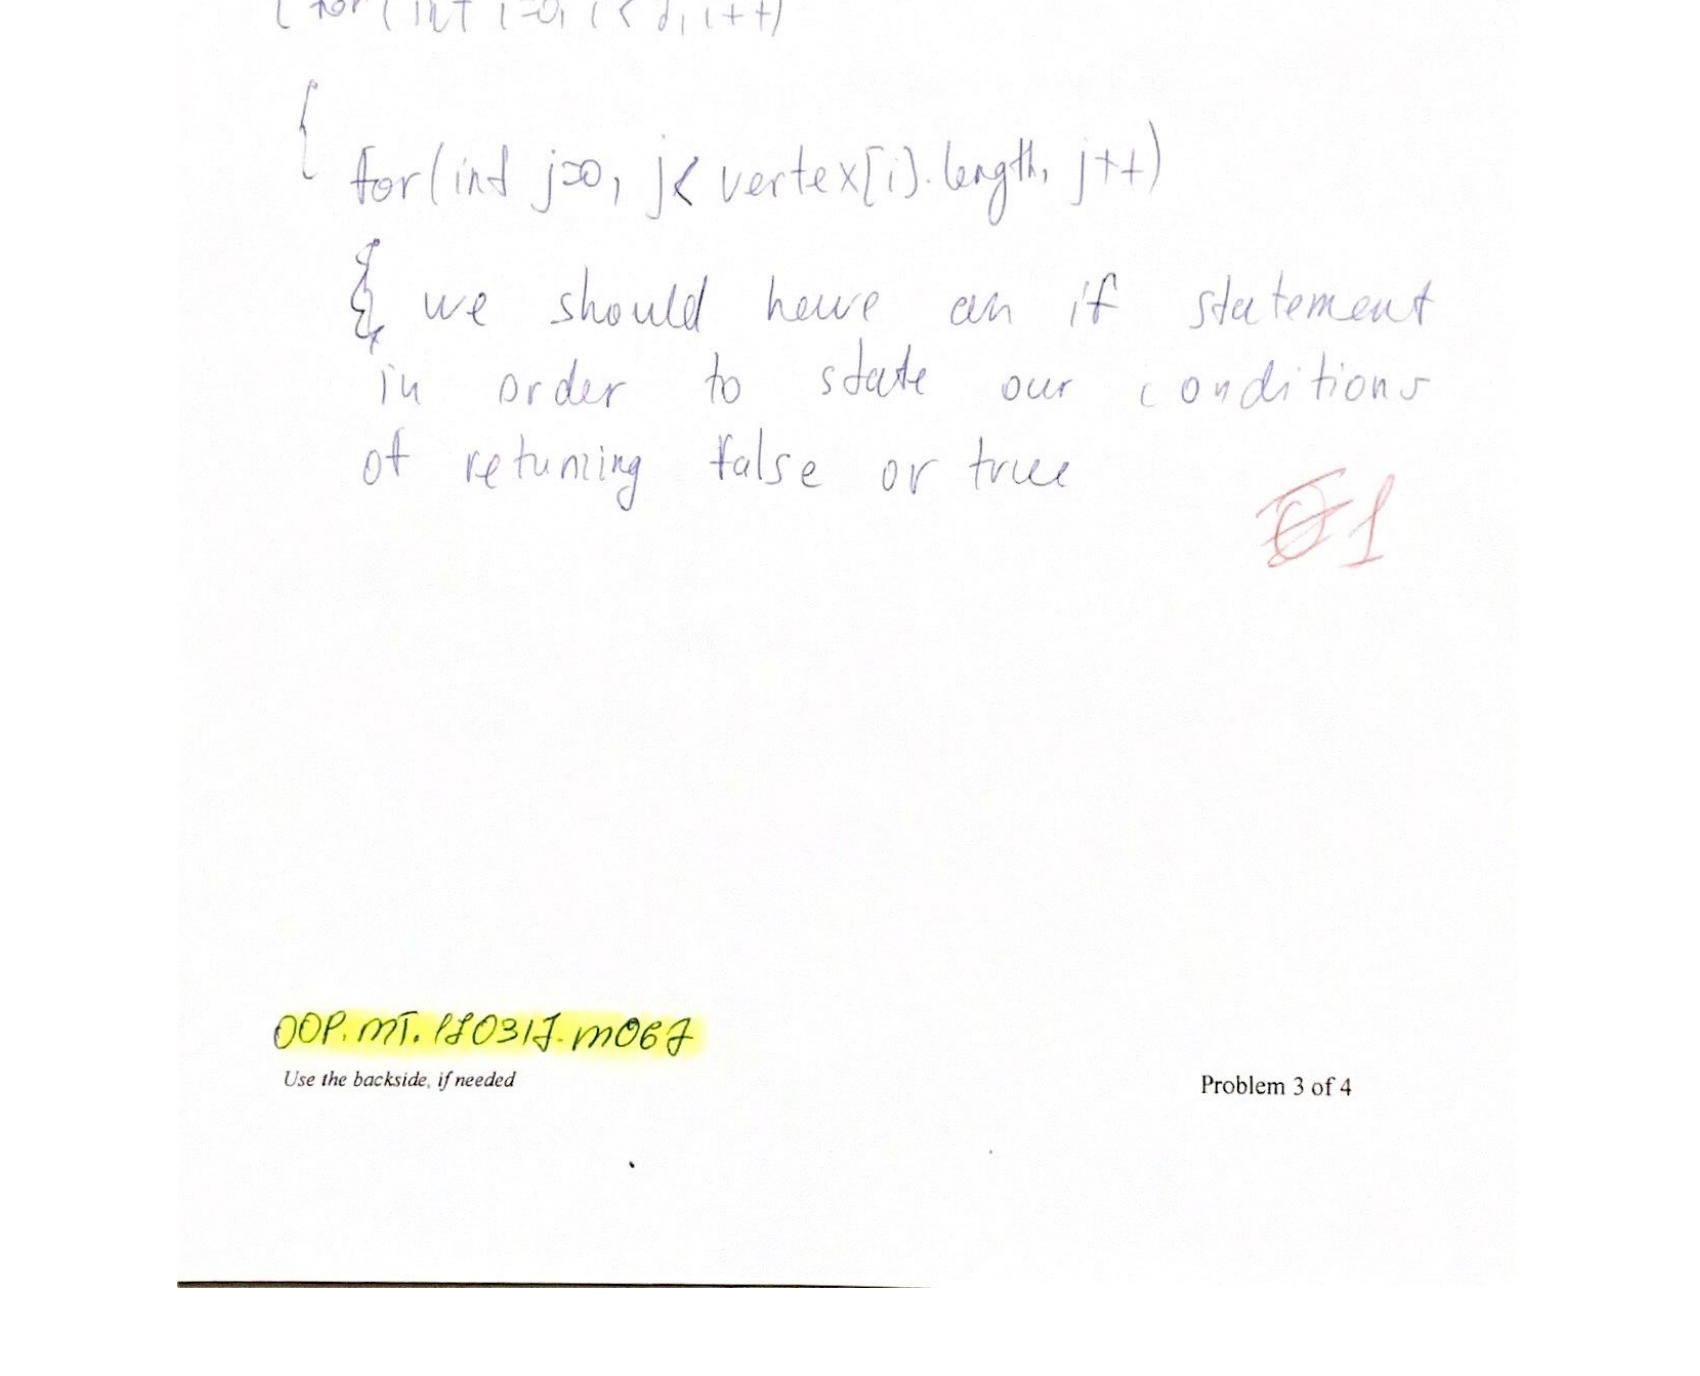 for(int j=0, j< vertex[i].length, j++)
{ we should have an if statement
in order to state our conditions
of retuning false or true
1
OOP.MT.170317.M067
Use the backside, if needed
Problem 3 of 4